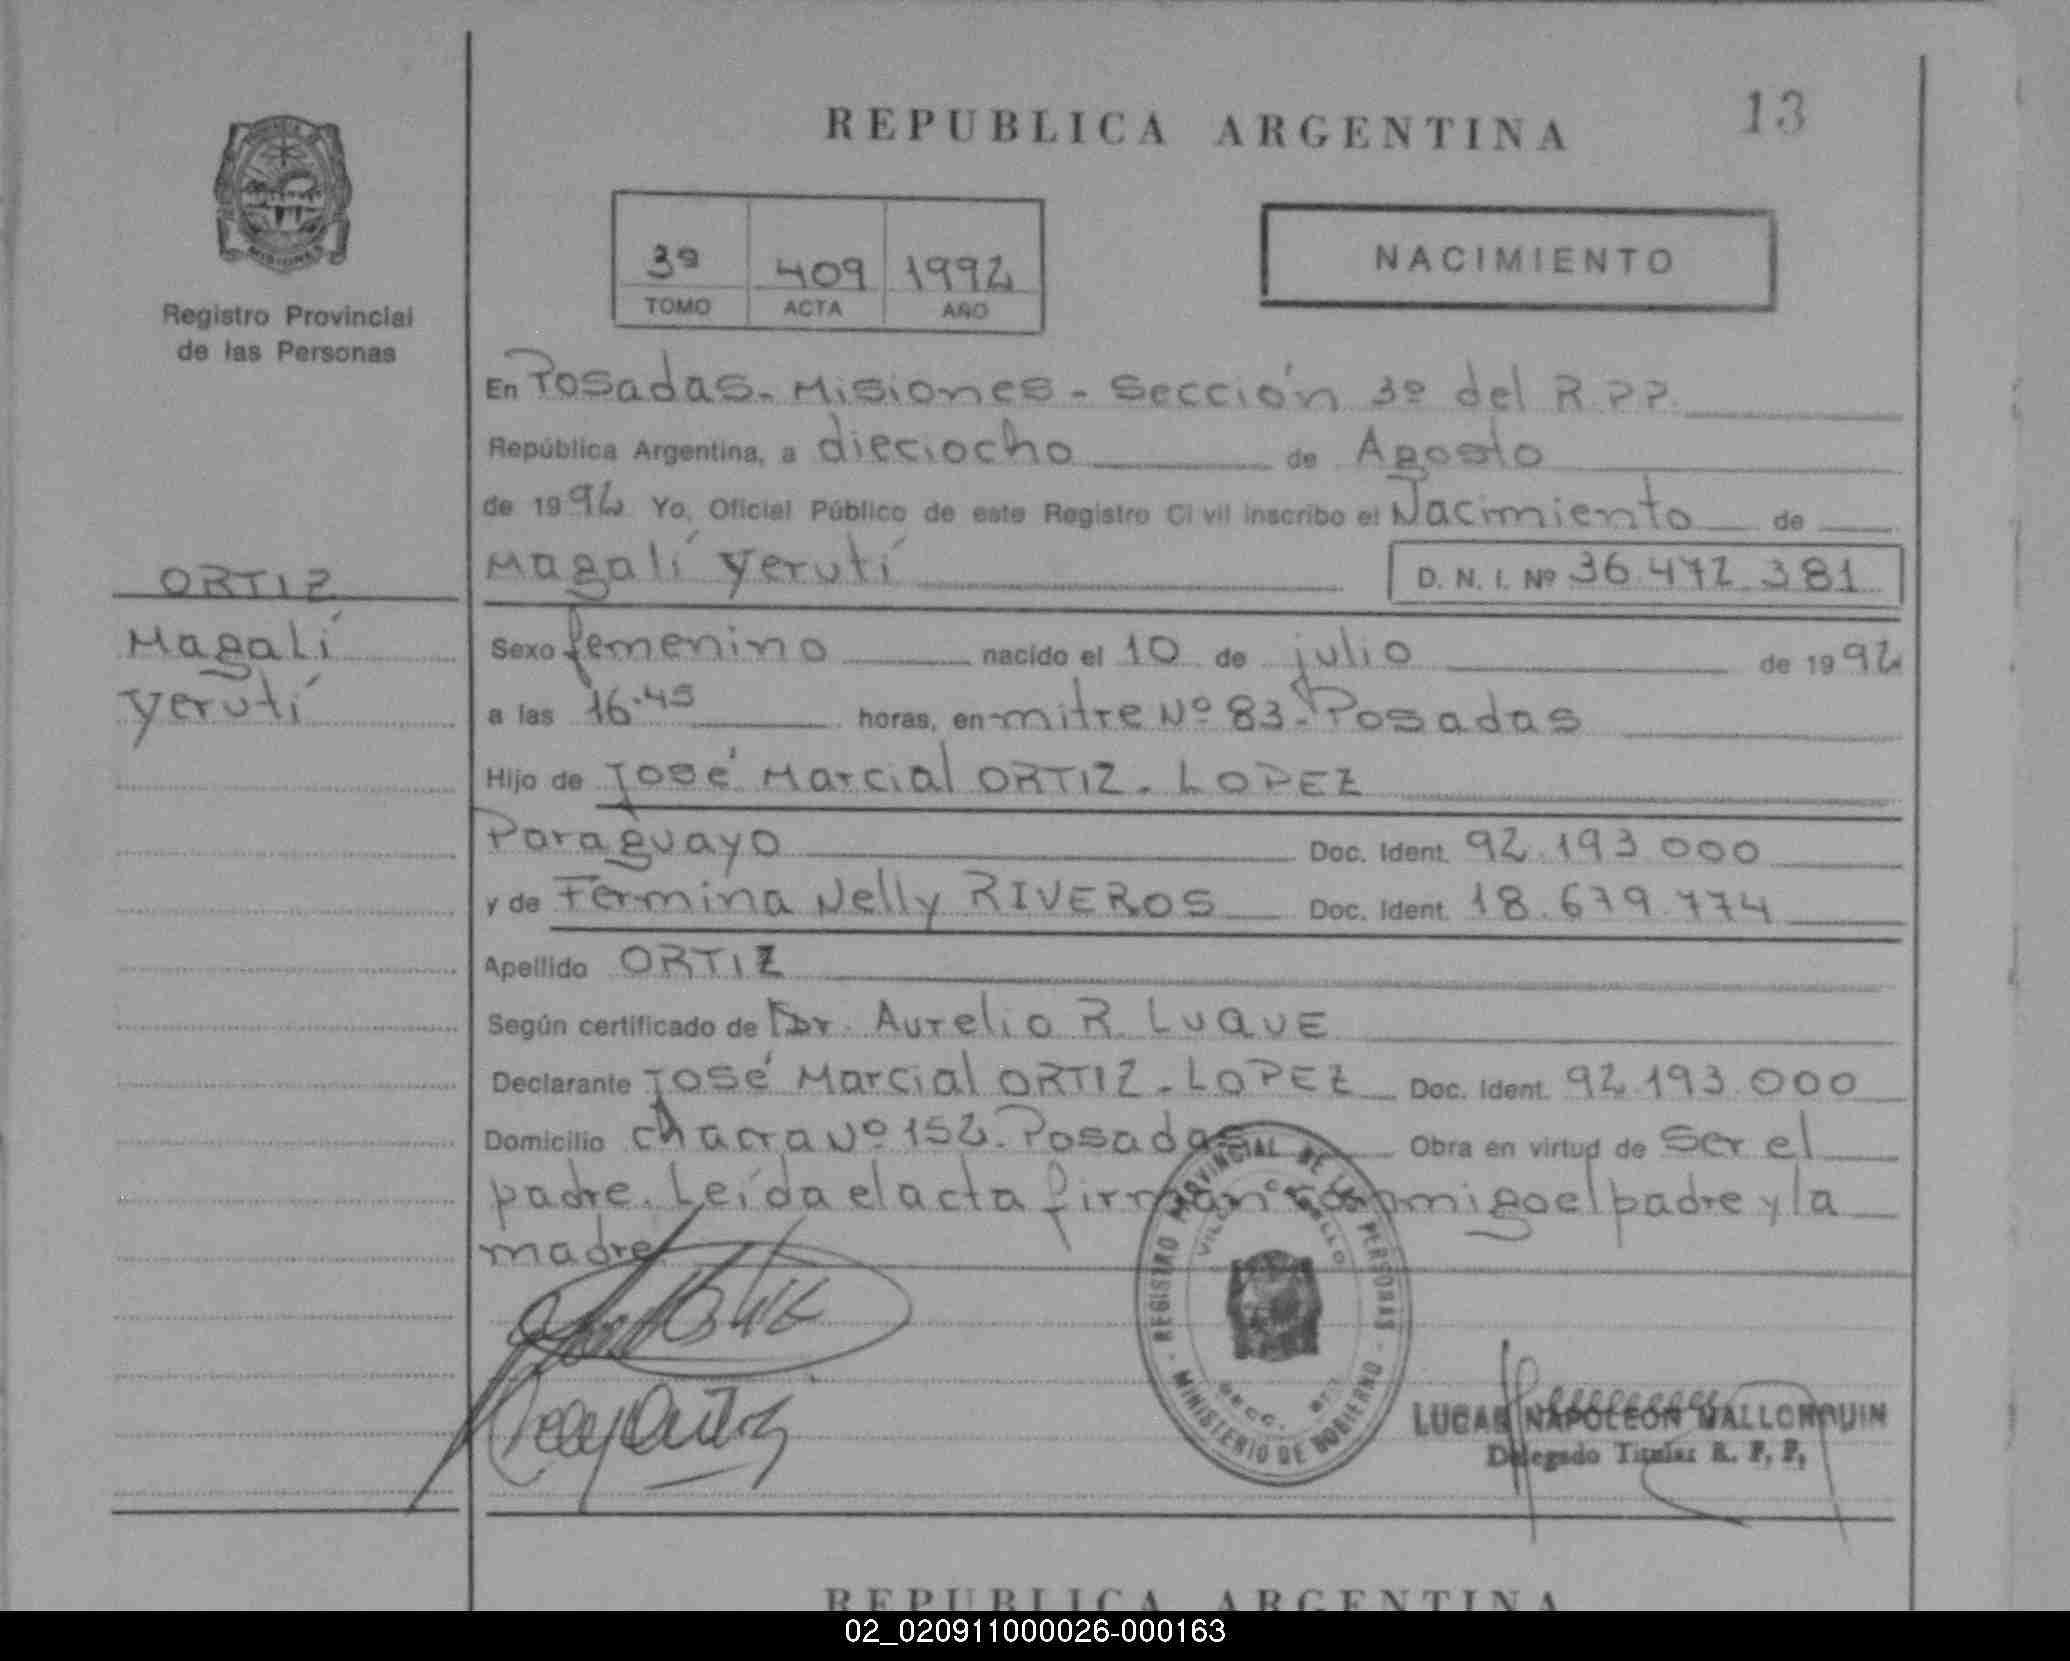 REPUBLICA ARGENTINA
13
Registro Provincial
de las Personas
3º 409 1992
TOMO ACTA AÑO
NACIMIENTO
En Posadas - Misiones - Sección 3º del R.P.P.
República Argentina, a dieciocho de Agosto
de 1992 Yo, Oficial Público de este Registro Civil inscribo el Nacimiento de
Magalí Yerutí D. N. I. Nº 36.472.381
ORTIZ
Magalí
Yerutí
Sexo femenino nacido el 10 de julio de 1992
a las 16.45 horas, en mitre Nº 83 - Posadas
Hijo de José Marcial ORTIZ - LOPEZ
Paraguayo Doc. Ident. 92.193.000
y de Fermina Nelly RIVEROS Doc. Ident. 18.679.774
Apellido ORTIZ
Según certificado de Dr. Aurelio R. LUQUE
Declarante José Marcial ORTIZ - LOPEZ Doc. Ident. 92.193.000
Domicilio chacra Nº 152 - Posadas Obra en virtud de ser el
padre. Leída el acta firman conmigo el padre y la
madre
REGISTRO PROVINCIAL DE LAS PERSONAS
MINISTERIO DE GOBIERNO
LUCAS NAPOLEON MALLORQUIN
Delegado Titular R. P. P.
REPUBLICA ARGENTINA
02_020911000026-000163